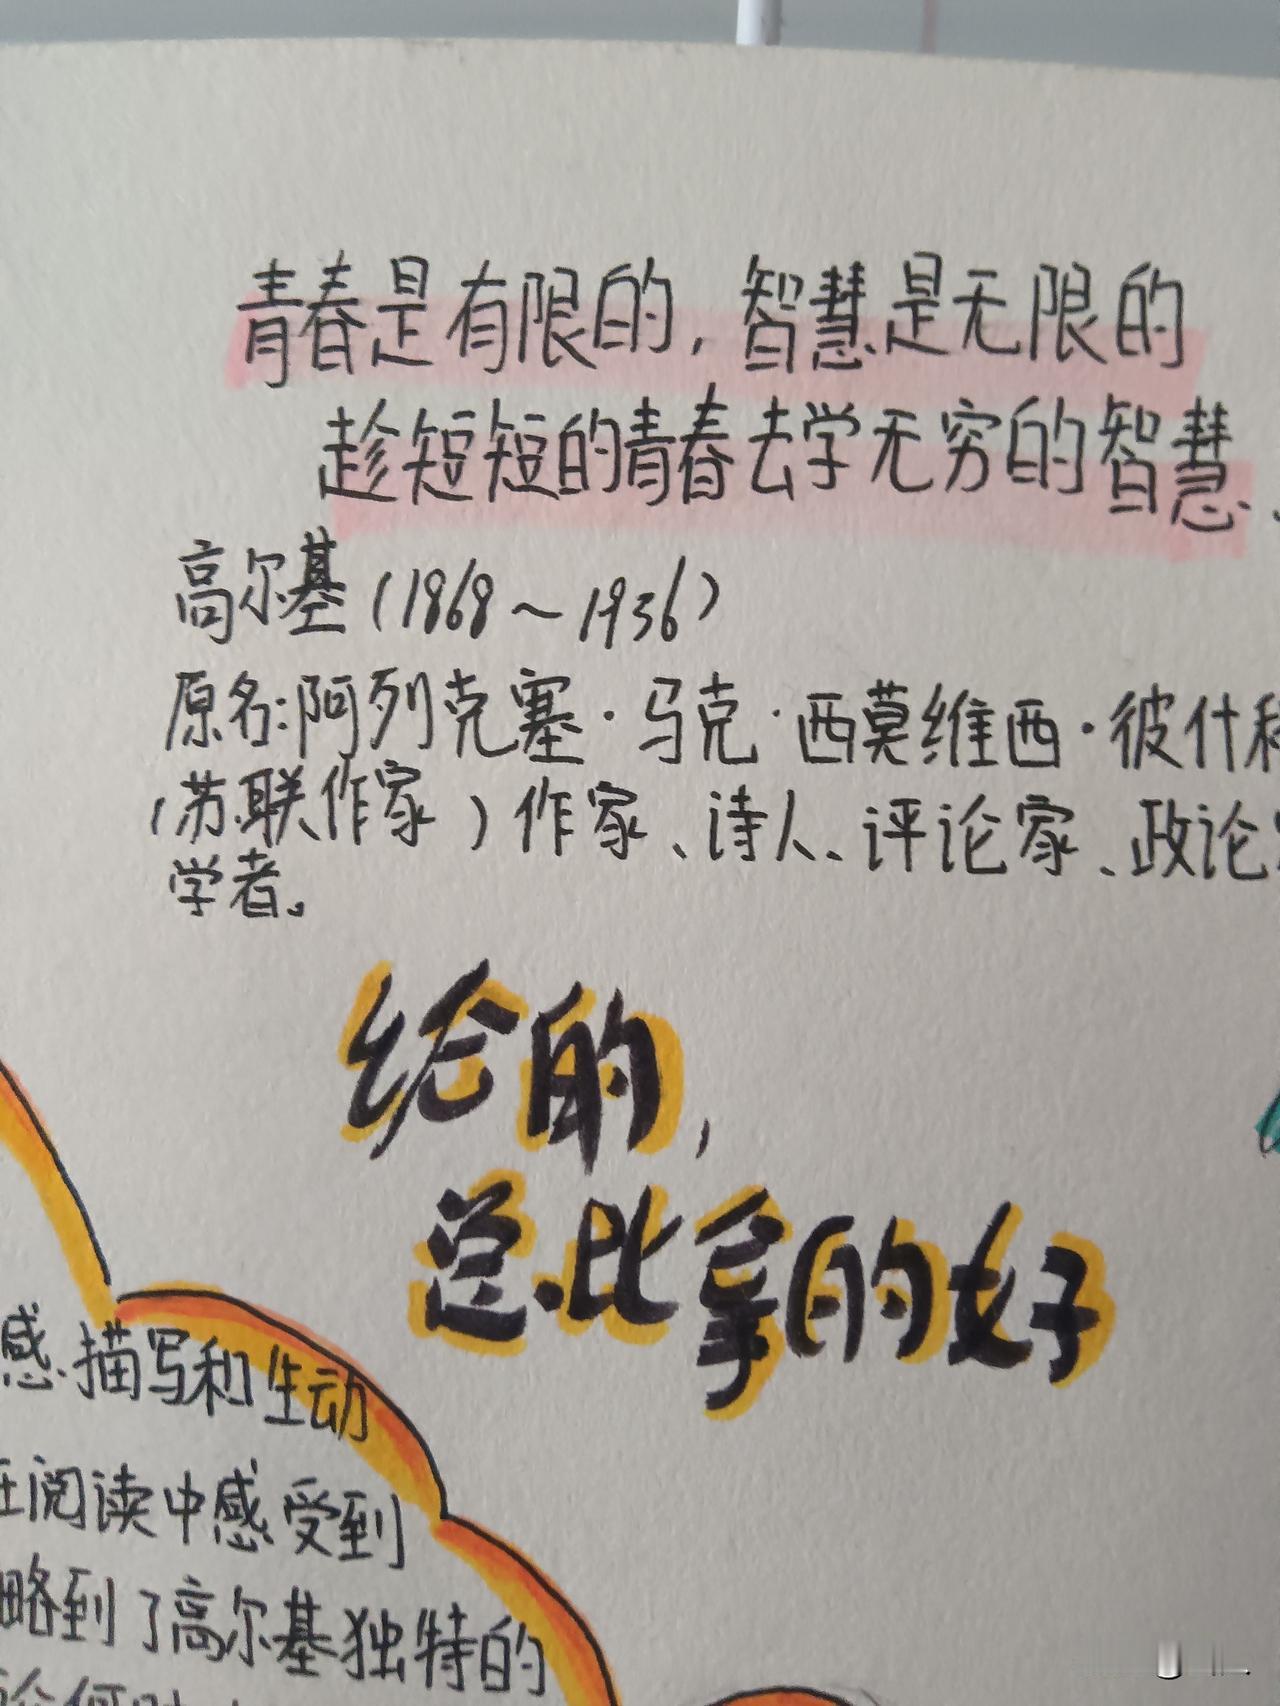 青春是有限的，智慧是无限的
趁短短的青春去学无穷的智慧、
高尔基（1868～1936）
原名：阿列克塞·马克·西莫维西·彼什
（苏联作家）作家、诗人、评论家、政论
学者。
给的，
总比拿的好
感描写和生动
阅读中感受到
略到了高尔基独特的